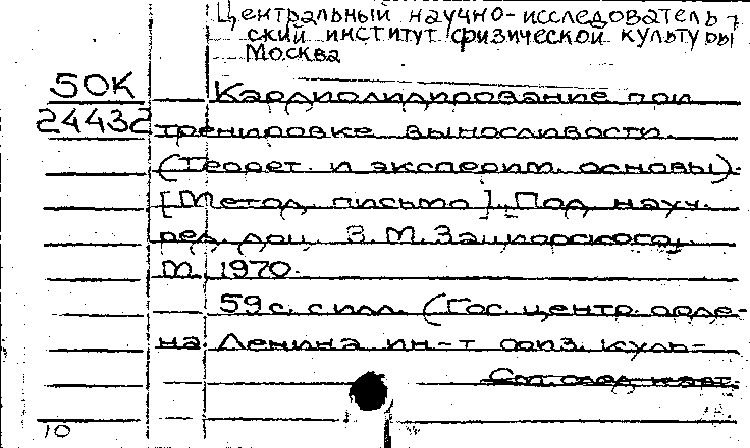 Центральный научно-исследователь-
ский институт физической культуры
Москва
50К
24432
Кардиолидирование при
тренировке выносливости.
(Теорет. и эксперим. основы).
[Метод. письмо]. Под науч.
ред. доц. В.М. Зациорского.
М. 1970.
59 с. с илл. (Гос. центр. орде-
на Ленина ин-т физ. куль-
См. след. карт.
10